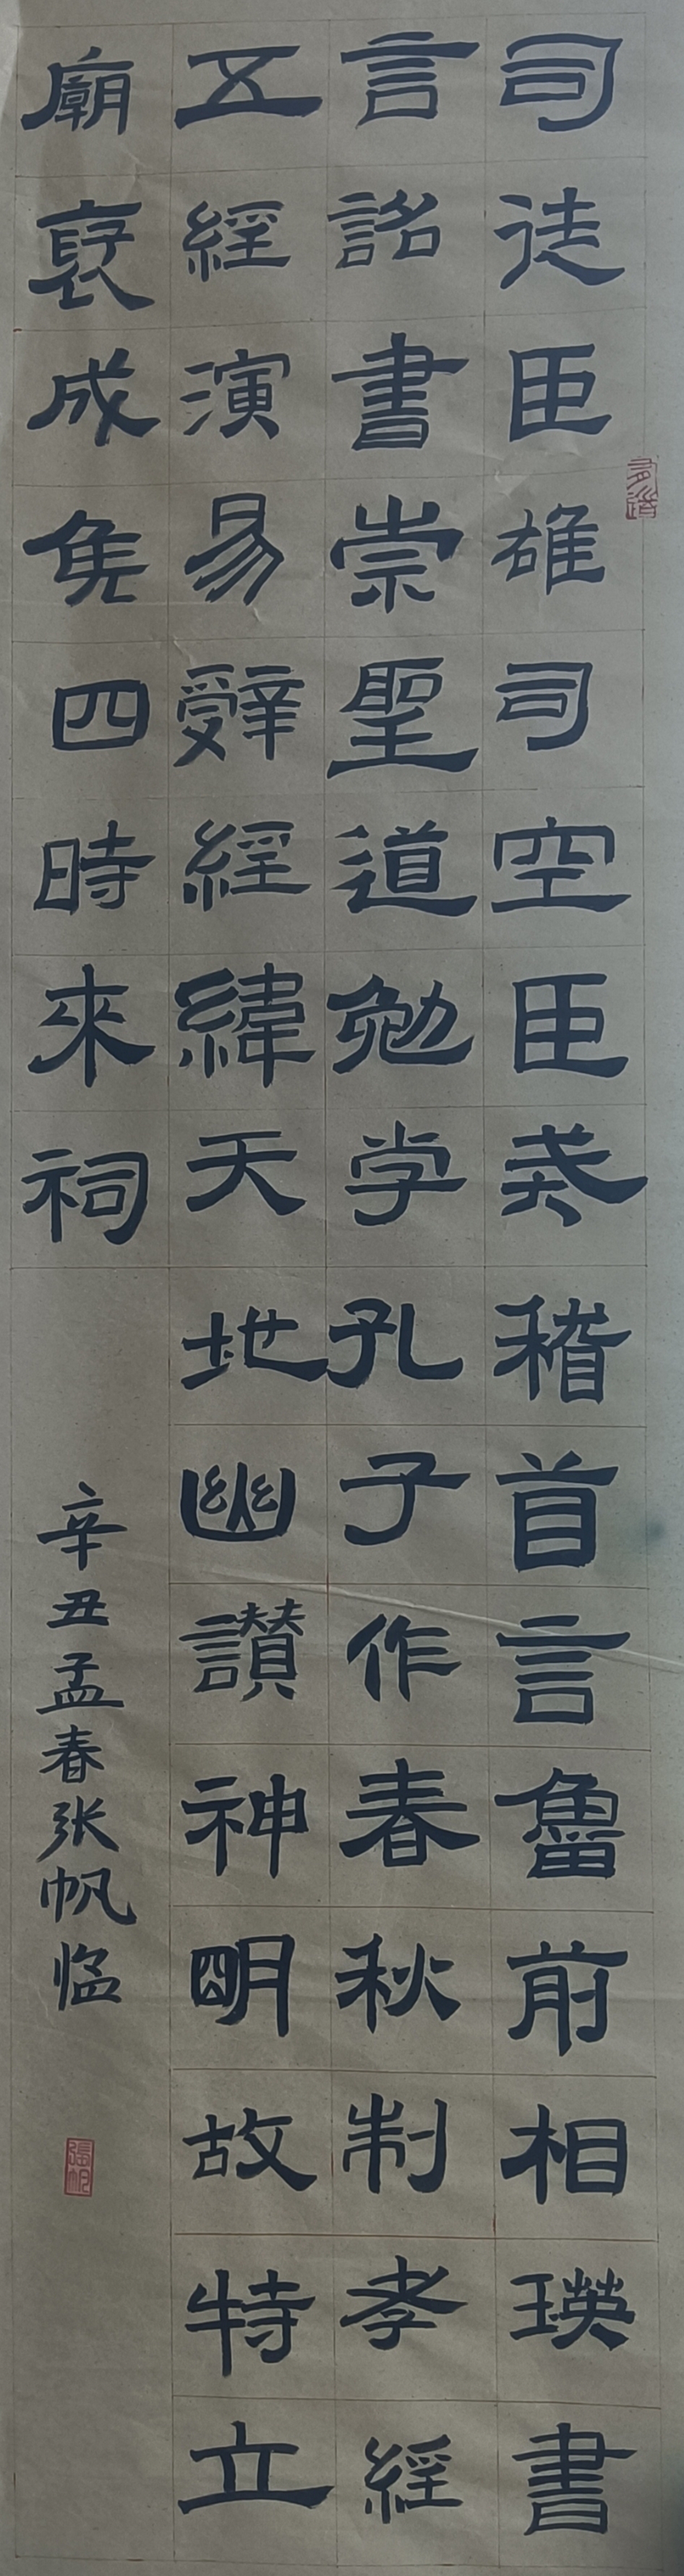 司徒臣雄司空臣戒稽首言魯前相瑛書
言詔書崇聖道勉学孔子作春秋制孝經
五經演易辭經緯天地幽讚神明故特立
廟褒成侯四時來祠
辛丑孟春张帆临
張帆